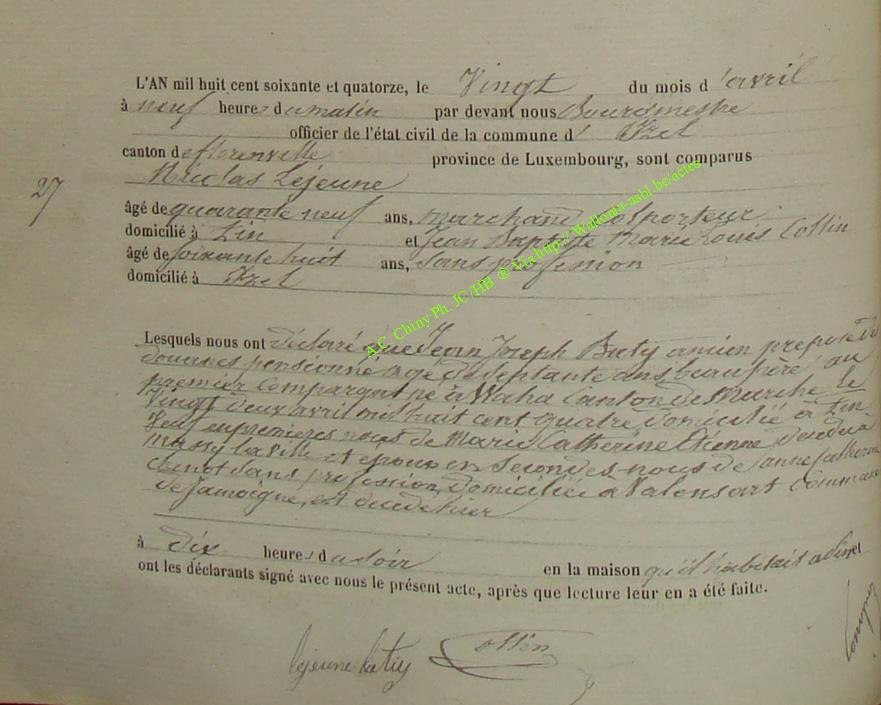 L'AN mil huit cent soixante et quatorze, le Vingt du mois d'avril
à neuf heures du matin par devant nous Bourgmestre
officier de l'état civil de la commune d' Izel
canton de florenville province de Luxembourg, sont comparus
Nicolas Lejeune
27
âgé de quarante neuf ans, marchand colporteur
domicilié à et Jean Baptiste Marie Louis Collin
âgé de soixante huit ans, sans profession
domicilié à Izel
Lesquels nous ont déclaré que Jean Joseph Buty ancien préposé de
douanes pensionné agé de septante ans beau père au
premier comparant né à Waha Canton de Marche le
Vingt deux avril mil huit cent quatre domicilié à
Veuf en premières noces de Marie Catherine Etienne décédée à
et époux en secondes noces de anne catherine
sans profession, domiciliée à Valensart commune
de Jamoigne, est décédé hier
à dix heures du soir en la maison qu'il habitait
ont les déclarants signé avec nous le présent acte, après que lecture leur en a été faite.
lejeune Collin
A.C. Chiny Ph. JC/HB ® Via http://Wallonia-asbl.be/actes